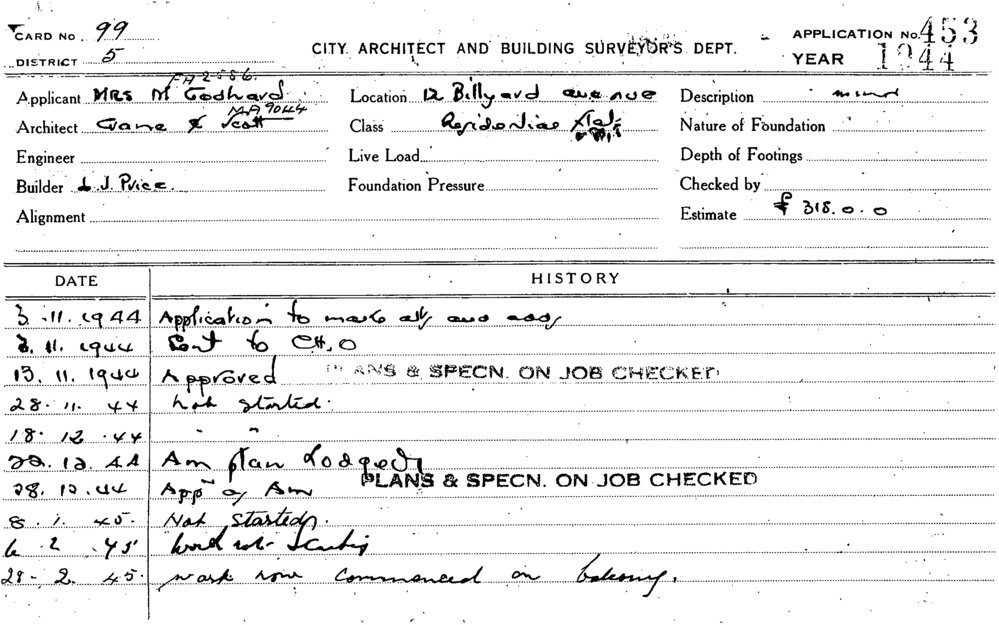 CARD No 99
DISTRICT 5
CITY ARCHITECT AND BUILDING SURVEYOR'S DEPT.
APPLICATION No. 453
YEAR 1944
FA2556.
Applicant MRS M Godhard
Location 12 Billyard avenue
Description minor
MA9044
Architect Crane & Scott
Class Residential flat
Nature of Foundation
Engineer
Live Load
Depth of Footings
Builder L J. Price.
Foundation Pressure
Checked by
Alignment
Estimate £ 318.0.0
DATE HISTORY
3.11.1944 Application to make alts and adds
3.11.1944 Sent to CH.O
13.11.1944 Approved PLANS & SPECN. ON JOB CHECKED
28.11.44 Not started.
18.12.44 " "
22.12.44 Am plan Lodged
28.12.44 App of Am PLANS & SPECN. ON JOB CHECKED
8.1.45. Not started.
6 2 45 Work not starting
28.2.45. work now commenced on balcony.